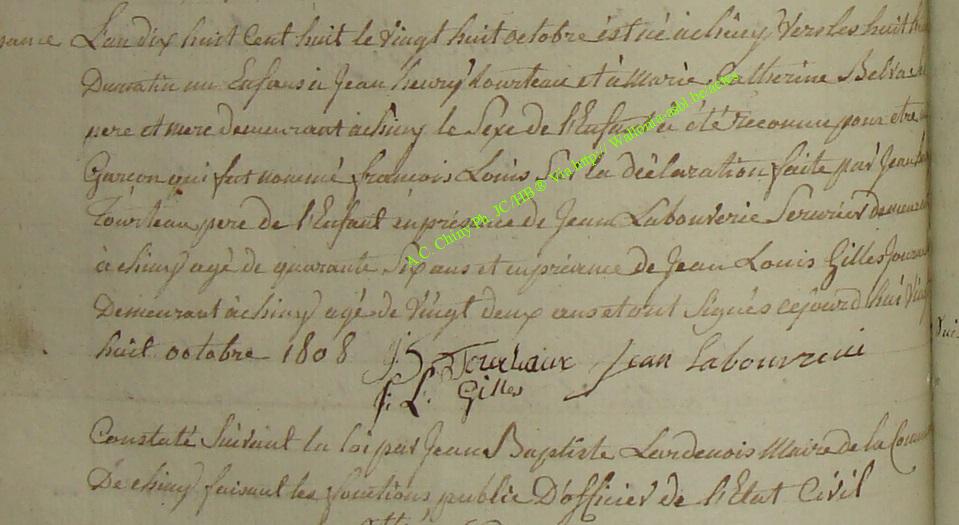 L'an dix huit Cent huit le vingt huit octobre est né a chiny vers les huit
Du matin un Enfans a Jean henry tourteau et a Marie Catherine
pere et mere demeurant a chiny le Sexe de l'Enfant a été reconnu pour etre
Garcon qui fut nommé francois Louis Sur la déclaration faite par Jean
Tourteau pere de l'Enfant en présence de Jean Labouverie Serurier
à chiny agé de quarante Six ans et en présence de Jean Louis Gilles
Demeurant à chiny agé de vingt deux ans et ont Signés cejourd'hui
huit octobre 1808
Jean Labouverie
J: L: Gilles
Constaté Suivant la loi par Jean Baptiste Lardenois Maire de la
De chiny faisant les fonctions public D'officier de l'Etat Civil
A.C. Chiny Ph. JC/HB® Via http://Wallonia-asbl.be/actes